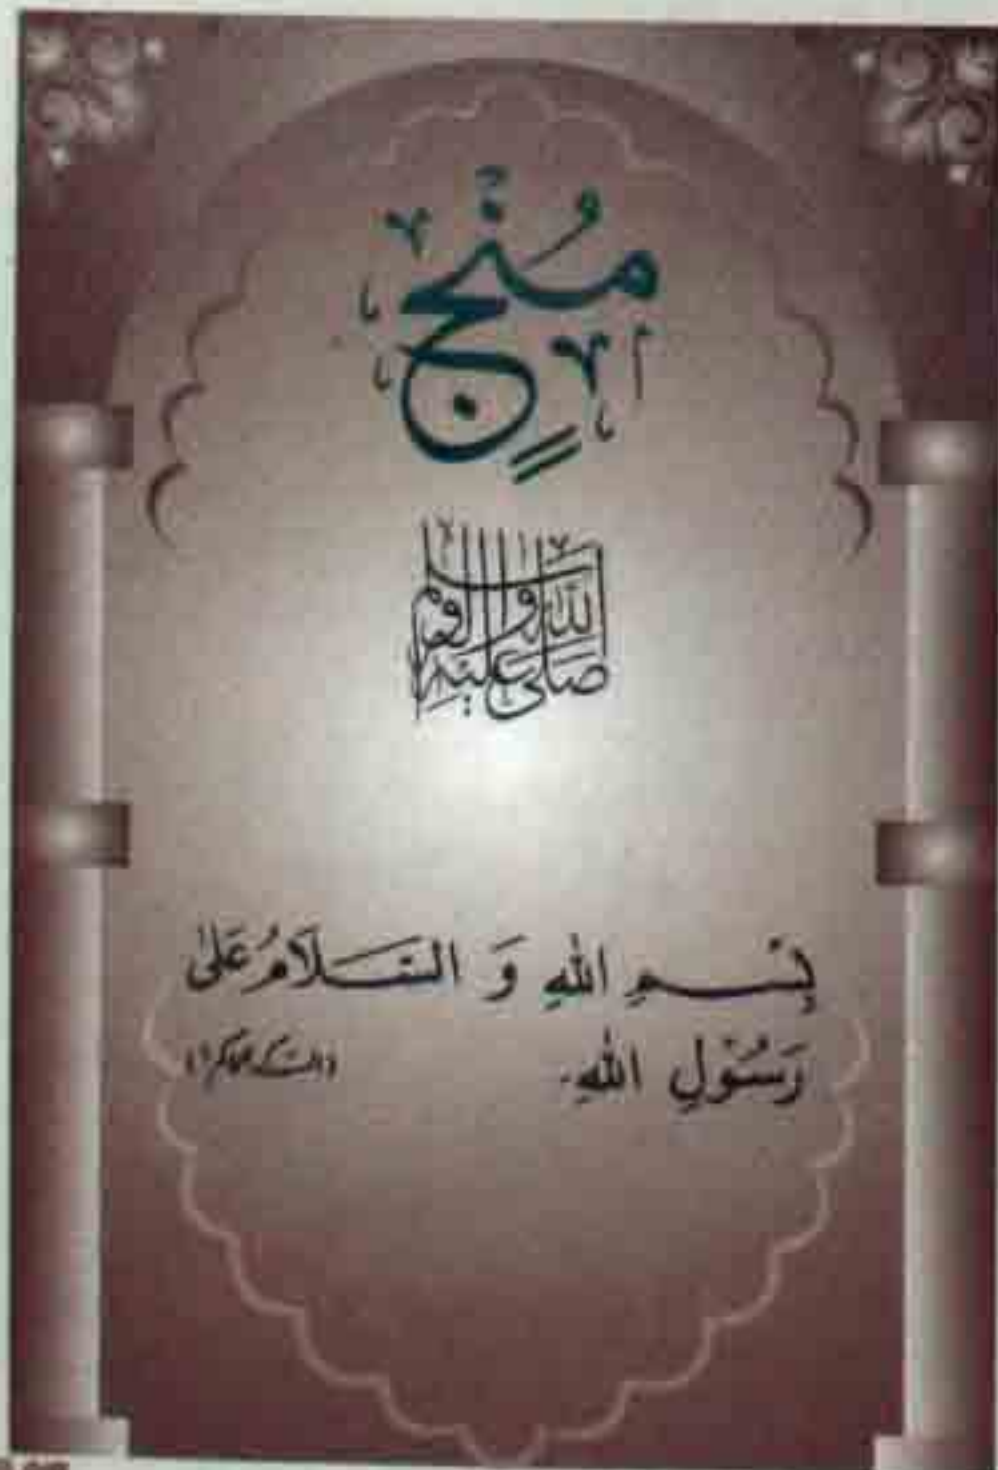 مُنْجٍ
صَلَّى اللّٰهُ عَلَيْهِ وَاٰلِهِ وَسَلَّم
بِسْمِ اللهِ وَ السَّلَامُ عَلٰى
رَسُوْلِ اللهِ۔